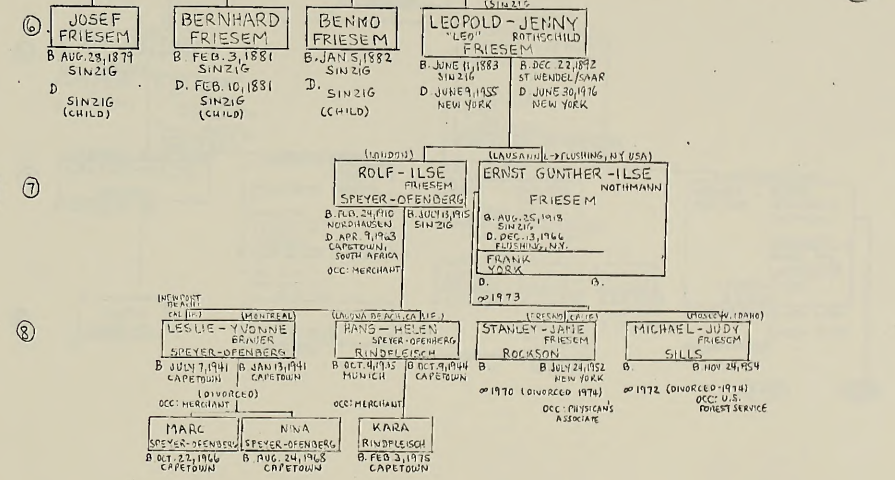 (SINZIG
⑥
JOSEF
FRIESEM
B AUG. 28, 1879
SINZIG
D
SINZIG
(CHILD)
BERNHARD
FRIESEM
B. FEB. 3, 1881
SINZIG
D. FEB. 10, 1881
SINZIG
(CHILD)
BENNO
FRIESEM
B. JAN 5, 1882
SINZIG
D.
SINZIG
(CHILD)
LEOPOLD - JENNY
"LEO" ROTHSCHILD
FRIESEM
B. JUNE 11, 1883
SINZIG
D JUNE 9, 1955
NEW YORK
B. DEC. 22, 1892
ST WENDEL/SAAR
D JUNE 30, 1976
NEW YORK
⑦
(LONDON)
ROLF - ILSE
FRIESEM
SPEYER-OFENBERG
B. FEB. 24, 1910
NORDHAUSEN
D. APR. 9, 1963
CAPETOWN,
SOUTH AFRICA
OCC: MERCHANT
B. JULY 13, 1915
SINZIG
(LAUSANNE→FLUSHING, NY USA)
ERNST GUNTHER - ILSE
NOTHMANN
FRIESEM
B. AUG. 25, 1918
SINZIG
D. DEC. 13, 1966
FLUSHING, N.Y.
FRANK
YORK
B. B.
∞1973
⑧
(NEWPORT
BEACH
CALIF.) (MONTREAL)
LESLIE - YVONNE
SPEYER-OFENBERG
B JULY 7, 1941
CAPETOWN
B JAN 13, 1941
CAPETOWN
(DIVORCED)
OCC: MERCHANT
(LAGUNA BEACH, CALIF.)
HANS - HELEN
SPEYER-OFENBERG
RINDFLEISCH
B OCT. 4, 1935
MUNICH
B OCT. 9, 1944
CAPETOWN
OCC: MERCHANT
(FRESNO, CALIF)
STANLEY - JANE
FRIESEM
ROCKSON
B.
B JULY 24, 1952
NEW YORK
∞1970 (DIVORCED 1974)
OCC: PHYSICAN'S
ASSOCIATE
IDAHO)
MICHAEL - JUDY
FRIESEM
SILLS
B.
B. NOV 24, 1954
∞1972 (DIVORCED-1974)
OCC: U.S.
FOREST SERVICE
MARC
SPEYER-OFENBERG
B OCT. 22, 1966
CAPETOWN
NINA
SPEYER-OFENBERG
B. AUG. 24, 1968
CAPETOWN
KARA
RINDFLEISCH
B. FEB 3, 1975
CAPETOWN